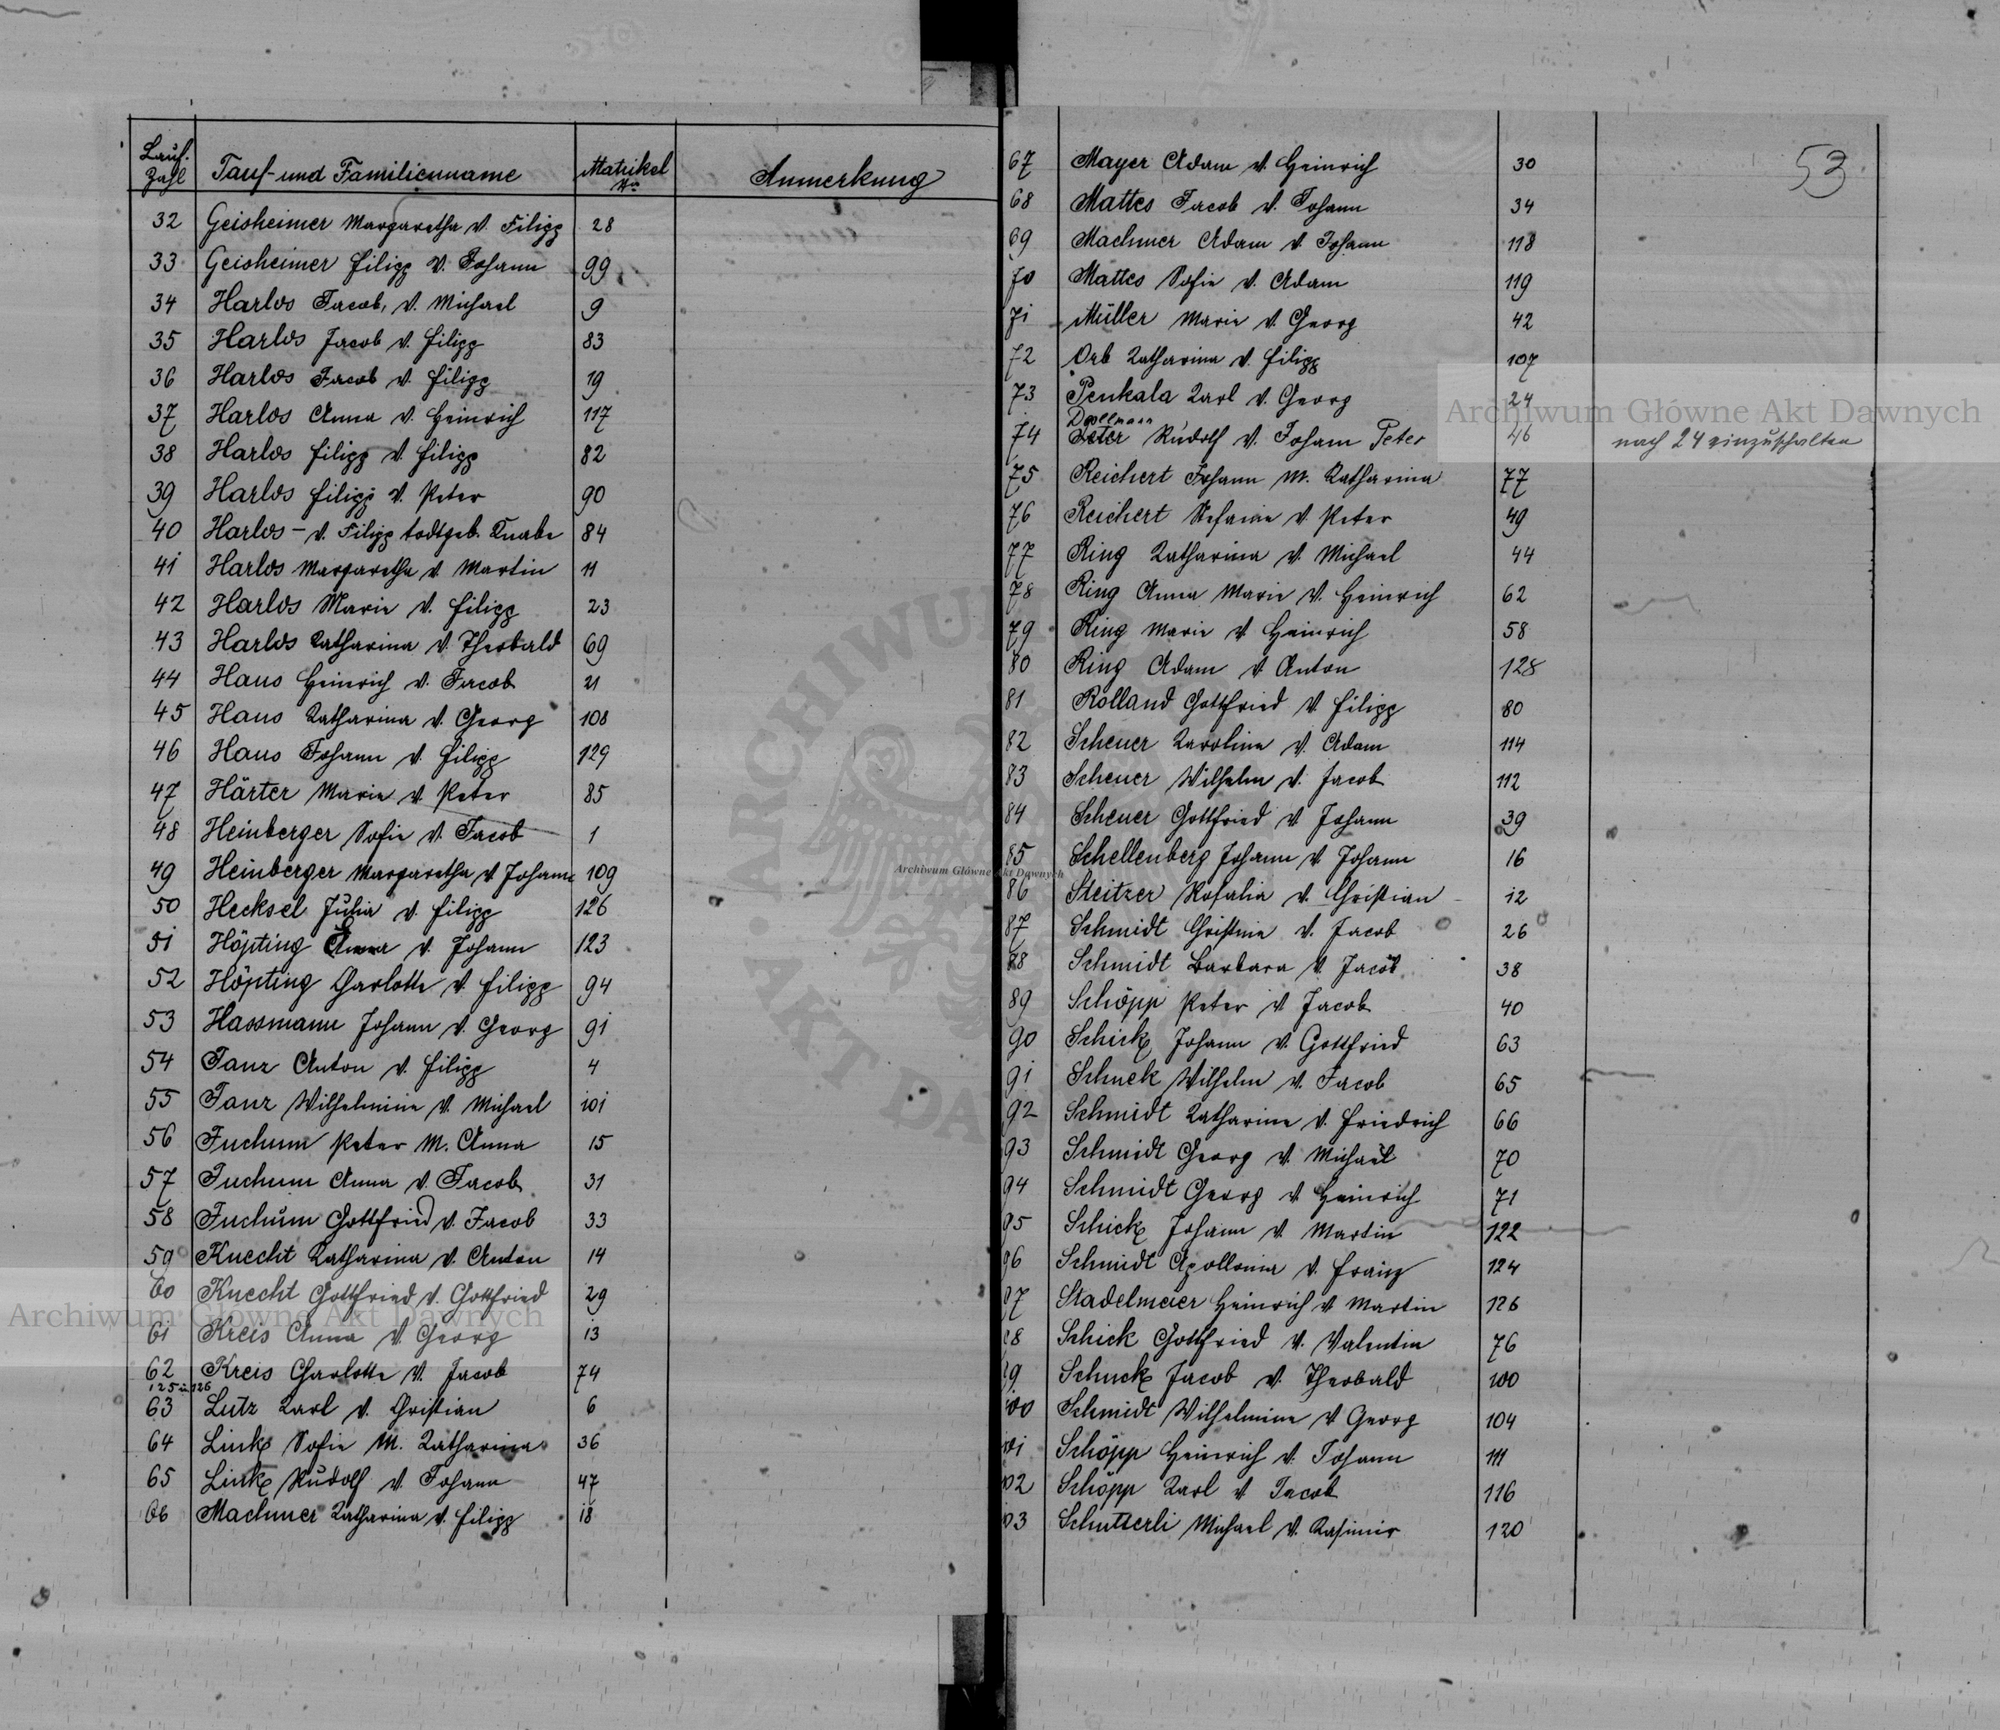 Lauf. Zahl Tauf- und Familienname Matrikel No Anmerkung
32 Geisheimer Margaretha v. Filipp 28
33 Geisheimer Filipp v. Johann 99
34 Harlos Jacob, v. Michael 9
35 Harlos Jacob v. Filipp 83
36 Harlos Jacob v. Filipp 19
37 Harlos Anna v. Heinrich 117
38 Harlos Filipp v. Filipp 82
39 Harlos Filipp v. Peter 90
40 Harlos – v. Filipp todtgeb. Knabe 84
41 Harlos Margaretha v. Martin 11
42 Harlos Marie v. Filipp 23
43 Harlos Katharina v. Theobald 69
44 Haus Heinrich v. Jacob 21
45 Haus Katharina v. Georg 108
46 Haus Johann v. Filipp 129
47 Härter Marie v. Peter 85
48 Heinberger Sofie v. Jacob 1
49 Heinberger Margaretha v Johann 109
50 Hecksel Julia v. Filipp 126
51 Höpting Anna v. Johann 123
52 Höpting Charlotte v. Filipp 94
53 Hassmann Johann v. Georg 91
54 Janz Anton v. Filipp 4
55 Janz Wilhelmine v. Michael 101
56 Juchum Peter M. Anna 15
57 Juchum Anna v. Jacob 31
58 Juchum Gottfried v. Jacob 33
59 Knecht Katharina v. Anton 14
60 Knecht Gottfried v. Gottfried 29
61 Kreis Anna v. Georg 13
62 Kreis Charlotte v. Jacob 74
125 u 126
63 Lutz Karl v. Christian 6
64 Link Sofie M. Katharina 36
65 Link Rudolf v. Johann 47
66 Machmer Katharina v. Filipp 18
53
67 Mayer Adam v. Heinrich 30
68 Mattes Jacob v. Johann 34
69 Machmer Adam v. Johann 118
70 Mattes Sofie v. Adam 119
71 Müller Marie v. Georg 42
72 Orb Katharina v. Filipp 107
73 Penkala Karl v. Georg 24
Dollmann
74 Peter Rudolf v. Johann Peter 46 nach 24 einzuschalten
75 Reichert Johann M. Katharina 77
76 Reichert Stefanie v. Peter 49
77 Ring Katharina v. Michael 44
78 Ring Anna Marie v. Heinrich 62
79 Ring Marie v. Heinrich 58
80 Ring Adam v. Anton 128
81 Rolland Gottfried v. Filipp 80
82 Scheuer Karoline v. Adam 114
83 Scheuer Wilhelm v. Jacob 112
84 Scheuer Gottfried v. Johann 39
85 Schellenberg Johann v. Johann 16
86 Steitzer Rosalia v. Christian 12
87 Schmidt Christine v. Jacob 26
88 Schmidt Barbara v. Jacob 38
89 Schöpp Peter v. Jacob 40
90 Schick Johann v. Gottfried 63
91 Schuck Wilhelm v. Jacob 65
92 Schmidt Katharina v. Friedrich 66
93 Schmidt Georg v. Michael 70
94 Schmidt Georg v. Heinrich 71
95 Schick Johann v. Martin 122
96 Schmidt Apollonia v. Franz 124
97 Stadelmeier Heinrich v. Martin 126
98 Schick Gottfried v. Valentin 76
99 Schuck Jacob v. Theobald 100
100 Schmidt Wilhelmine v Georg 104
101 Schöpp Heinrich v. Johann 111
102 Schöpp Karl v Jacob 116
103 Schutterli Michael v. Kasimir 120
Archiwum Główne Akt Dawnych
Archiwum Główne Akt Dawnych
Archiwum Główne Akt Dawnych